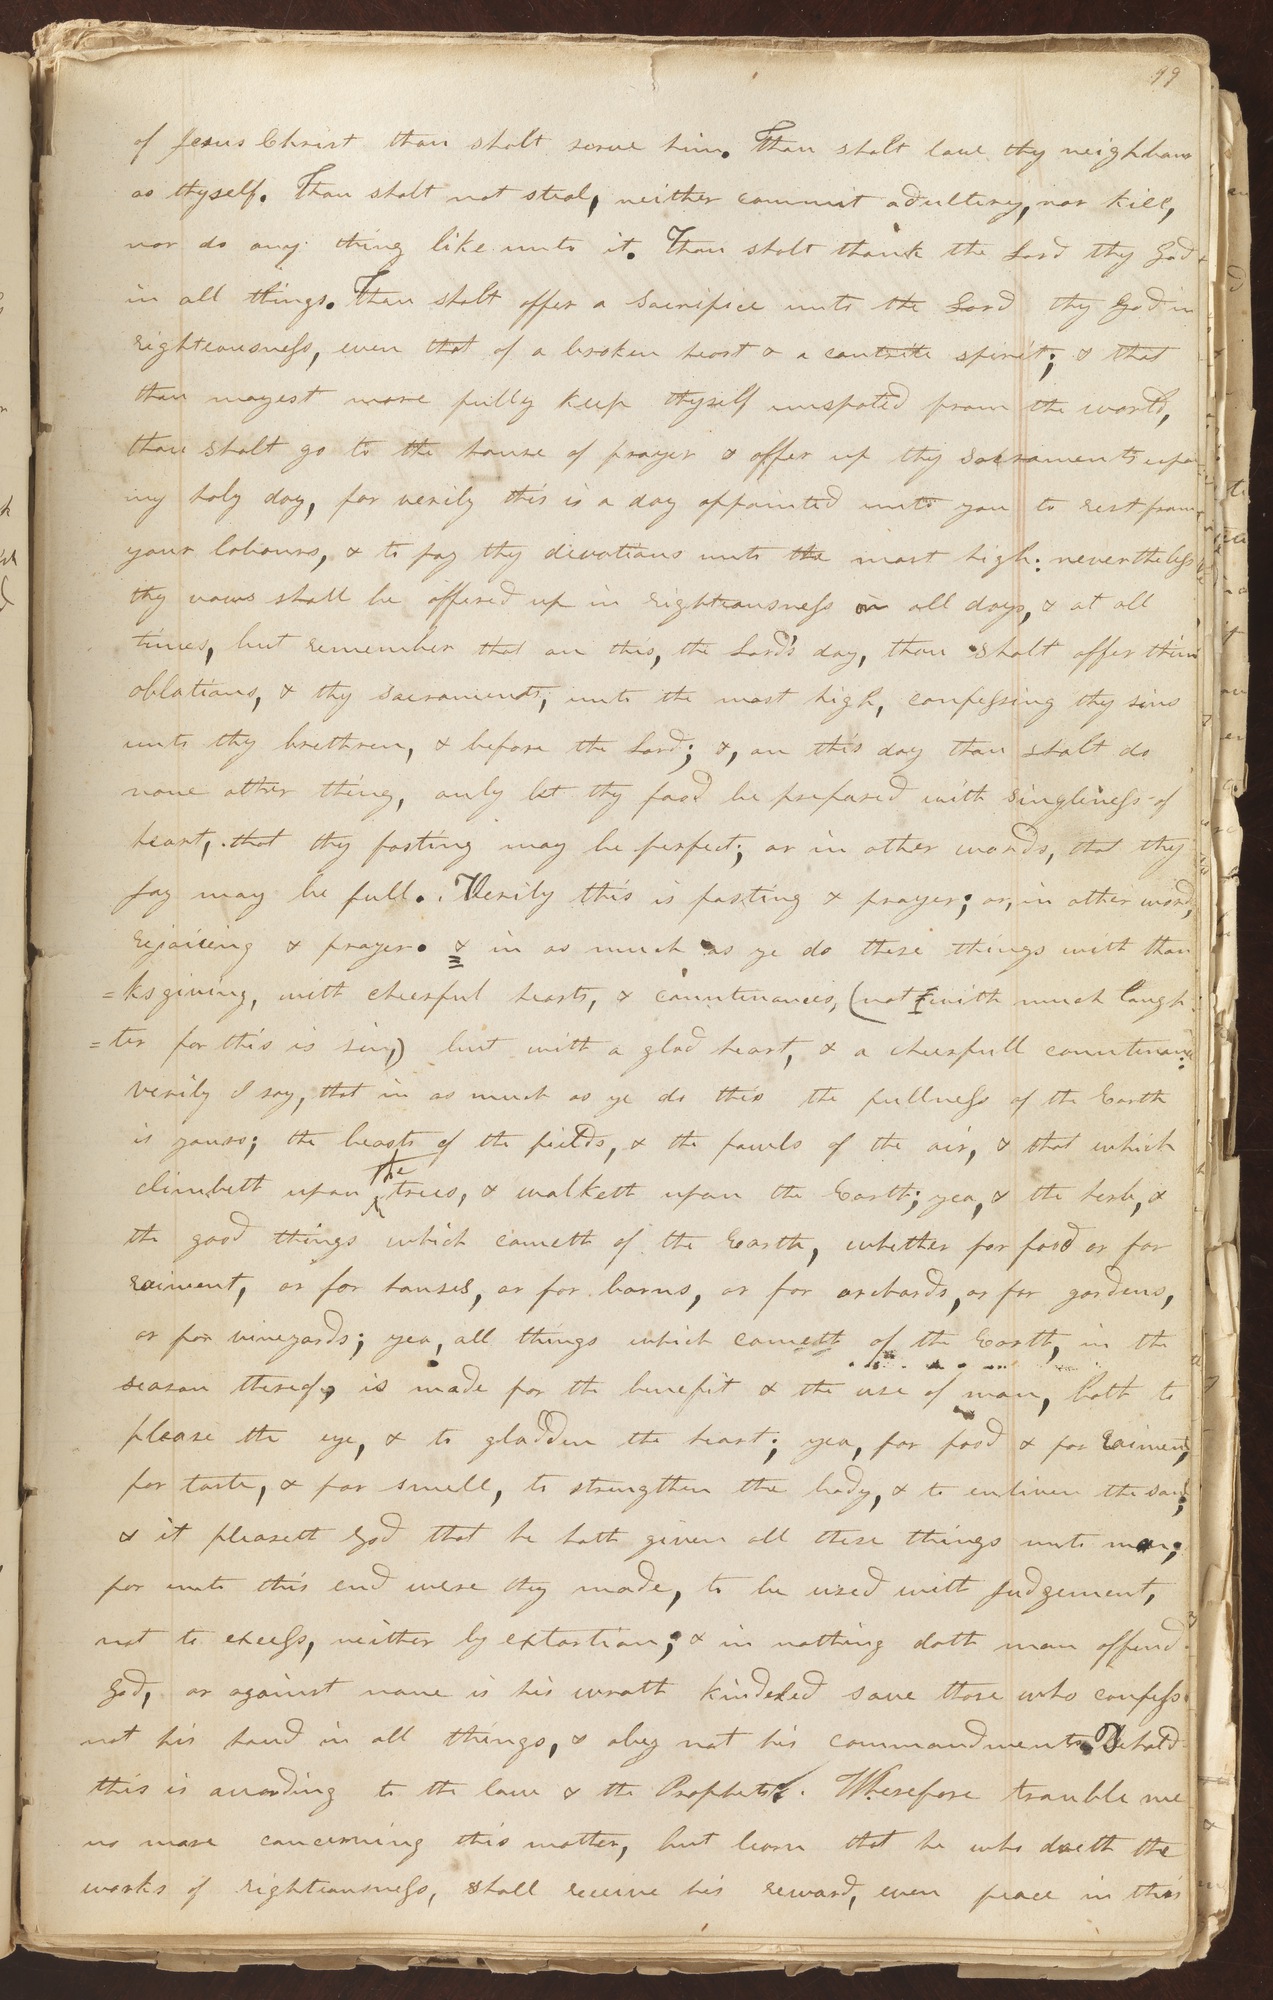 99
of Jesus Christ thou shalt serve him. Thou shalt love thy neighbour
as thyself. Thou shalt not steal, neither commit adultery, nor kill,
nor do any thing like unto it. Thou shalt thank the Lord thy God
in all things. Thou shalt offer a Sacrifice unto the Lord thy God in
righteousness, even that of a broken heart & a contrite spirit; & that
thou mayest more fully keep thyself unspoted from the world,
thou shalt go to the house of prayer & offer up thy sacraments upon
my holy day, for verily this is a day appointed unto you to rest from
your labours, & to pay thy devotions unto the most high: nevertheless
thy vows shall be offered up in righteousness on all days, & at all
times, but remember that on this, the Lord's day, thou shalt offer thine
oblations, & thy sacraments, unto the most high, confessing thy sins
unto thy brethren, & before the Lord; &, on this day thou shalt do
none other thing, only let thy food be prepared with singleness of
heart, that thy fasting may be perfect; or in other words, that thy
joy may be full. Verily this is fasting & prayer; or, in other words,
rejoiceing & prayer. & in as much as ye do these things with than
=ksgiving, with cheerful hearts, & countinances, (not with much laugh
=ter for this is sin,) but with a glad heart, & a cheerfull countinance:
verily I say, that in as much as ye do this the fullness of the Earth
is yours; the beasts of the fields, & the fowls of the air, & that which
climbeth upon the trees, & walketh upon the Earth; yea, & the herb, &
the good things which cometh of the Earth, whether for food or for
raiment, or for houses, or for barns, or for orchards, or for gardens,
or for vineyards; yea, all things which cometh of the Earth, in the
season thereof, is made for the benefit & the use of man, both to
please the eye, & to gladden the heart; yea, for food & for raiment,
for taste, & for smell, to strengthen the body, & to enliven the soul;
& it pleaseth God that he hath given all these things unto man;
for unto this end were they made, to be used with Judgement,
not to excess, neither by extortion; & in nothing doth man offend
God, or against none is his wrath kindeled save those who confess
not his hand in all things, & obey not his commandments. Behold
this is according to the law & the Prophets. Wherefore trouble me
no more concerning this matter, but learn that he who doeth the
works of righteousness, shall receive his reward, even peace in this